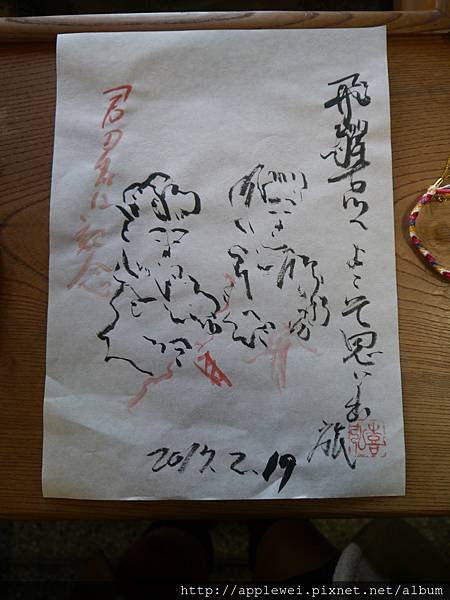 飛騨古川へ ようこそ 思い出 旅
君の名は 記念
2017. 2. 19
http://applewei.pixnet.net/album